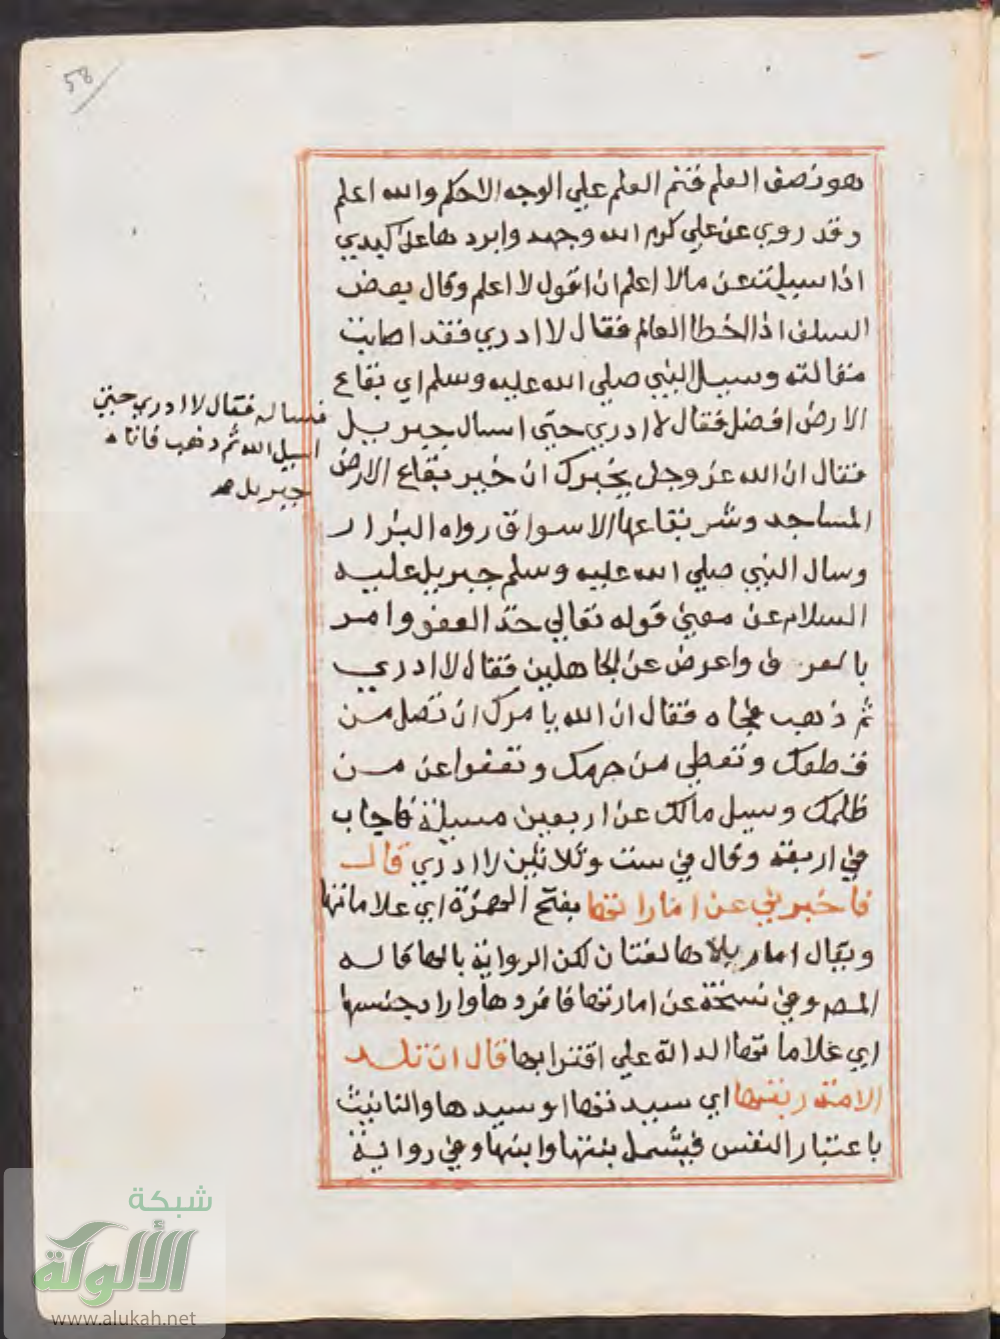 58
هو نصف العلم فتم العلم علي الوجه الاحكم والله اعلم
وقد روي عن علي كرم الله وجهه وابردها علي كبدي
اذا سيلت عن مالا اعلم ان اقول لا اعلم وقال بعض
السلف اذا اخطا العالم فقال لا ادري فقد اصابت
مقالته وسيل النبي صلي الله عليه وسلم اي بقاع
الارض افضل فقال لا ادري حتي اسال جبريل
فساله فقال لا ادري حتي
اسيل الله ثم ذهب فاتاه
جبريل صح
فقال ان الله عز وجل يخبرك ان خير بقاع الارض
المساجد وشر بقاعها الاسواق رواه البزار
وسال النبي صلي الله عليه وسلم جبريل عليه
السلام عن معني قوله تعالي خذ العفو وامر
بالعرف واعرض عن الجاهلين فقال لا ادري
ثم ذهب فجاه فقال ان الله يامرك ان تصل من
قطعك وتعطي من حرمك وتعفوا عن من
ظلمك وسيل مالك عن اربعين مسيلة فاجاب
في اربعة وقال في ست وثلاثين لا ادري قال
فاخبرني عن اماراتها بفتح الهمزة اي علاماتها
ويقال امار بلاها لغتان لكن الرواية بالها قاله
المصر وفي نسخة عن امارتها فافردها واراد جنسها
اي علاماتها الدالة علي اقترابها قال ان تلد
الامة ربتها اي سيدتها او سيدها والتانيث
باعتبار النفس فيشمل بنتها وابنها وفي رواية
شبكة
الألوكة
www.alukah.net